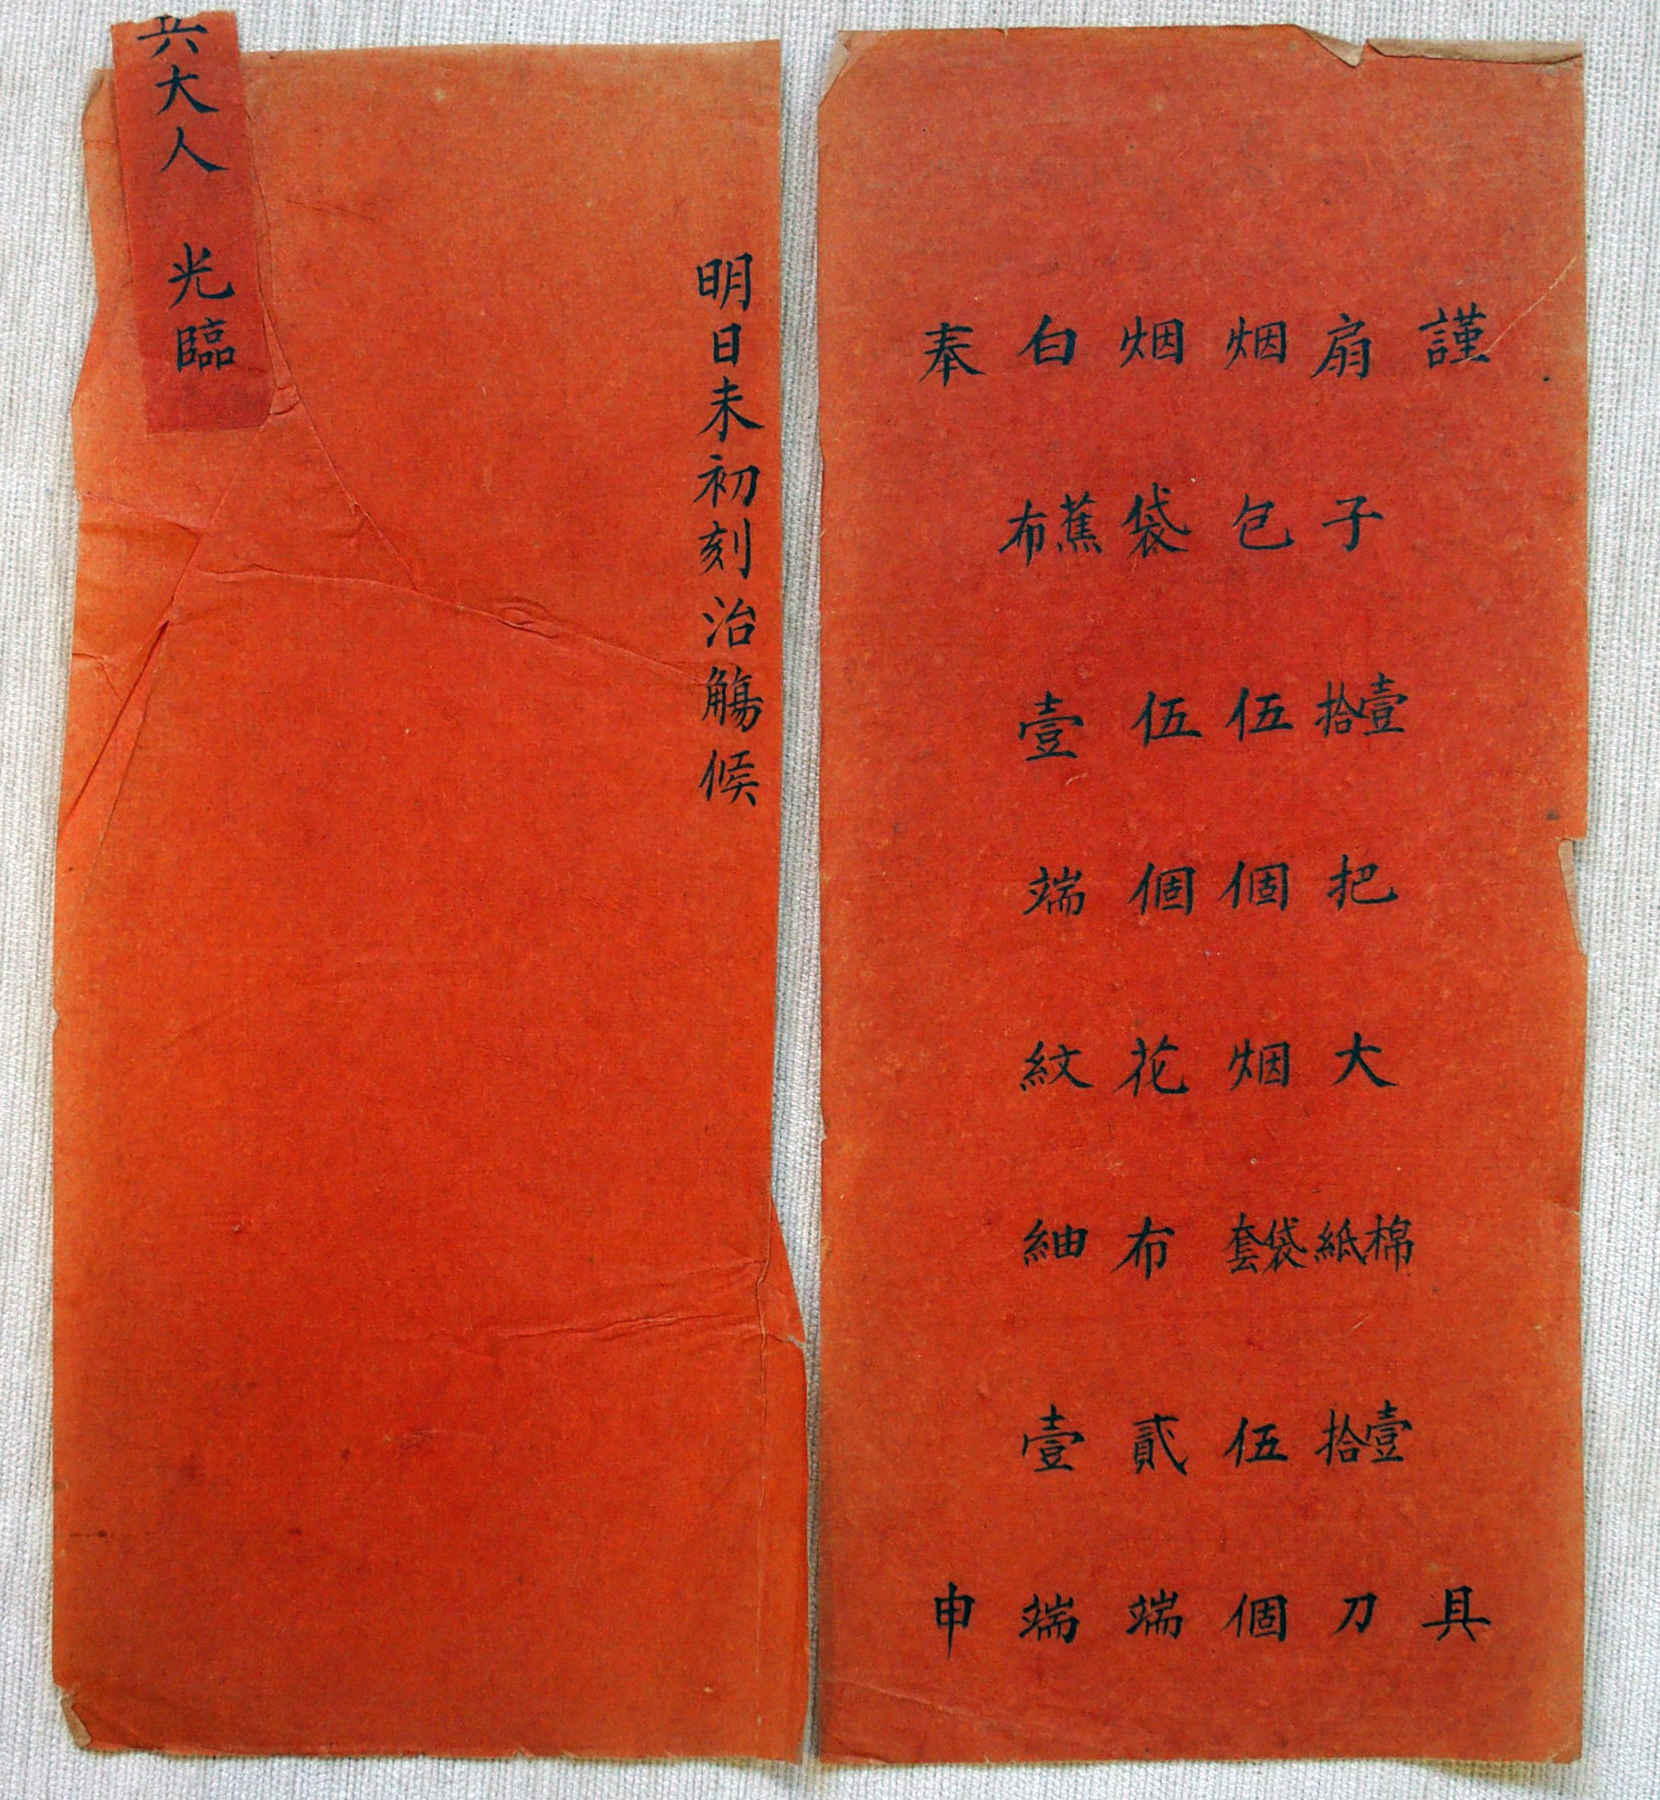 謹具
扇子壹拾把大棉紙壹拾刀
烟包伍個烟袋套伍個
烟袋伍個花布貳端
白蕉布壹端紋紬壹端
奉申
明日未初刻治觴候
大人光臨